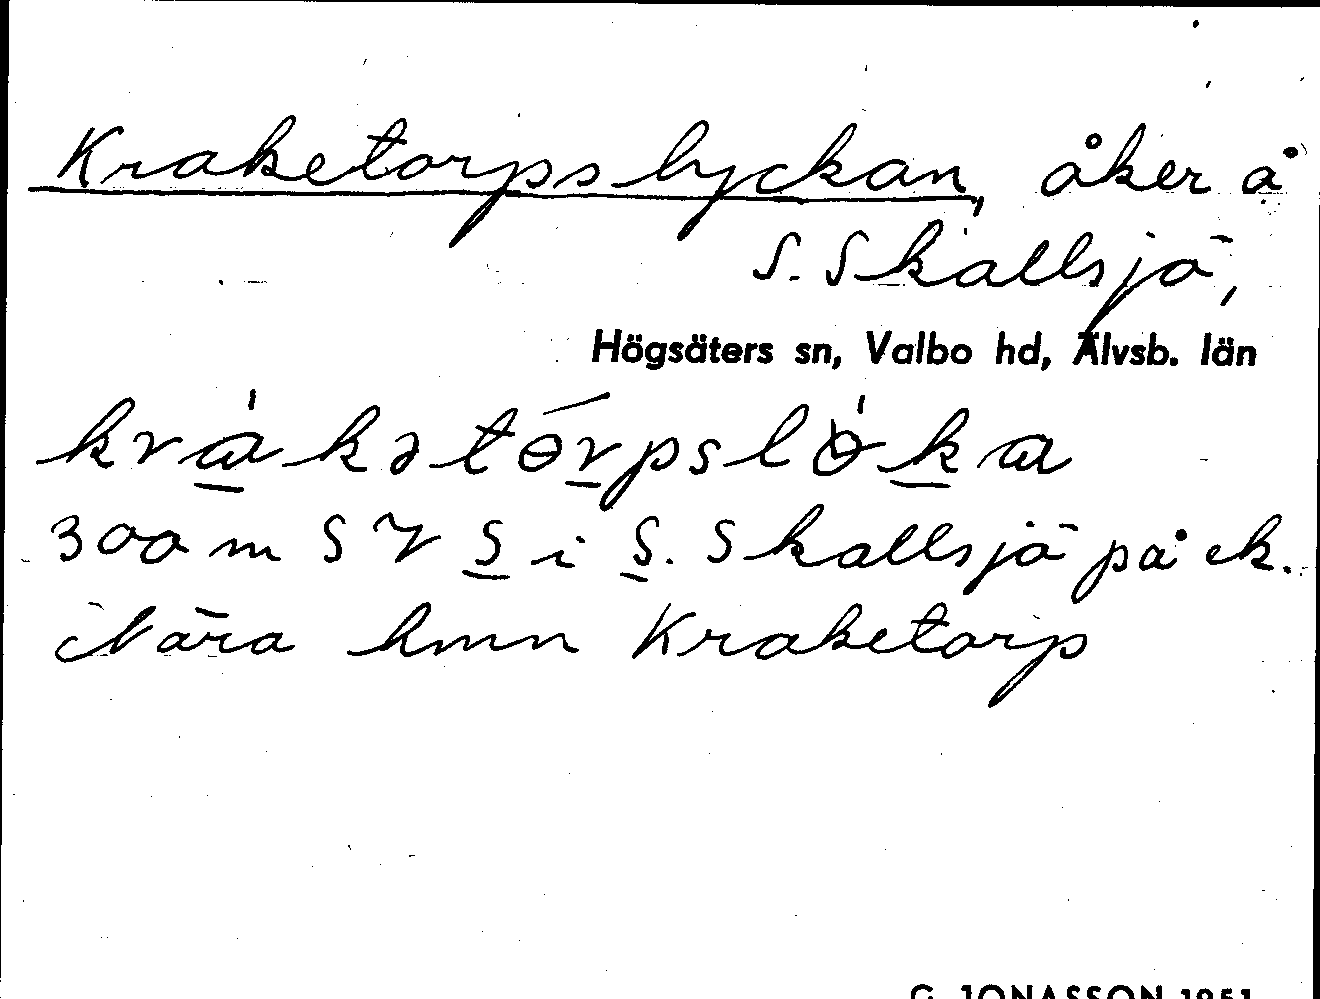 Kraketorpslyckan, åker å
S. Skallsjö,
Högsäters sn, Valbo hd, Älvsb. län
300 m SV S i S. Skallsjö på ek.
Nära hmn Kraketorp
G. JONASSON 1951